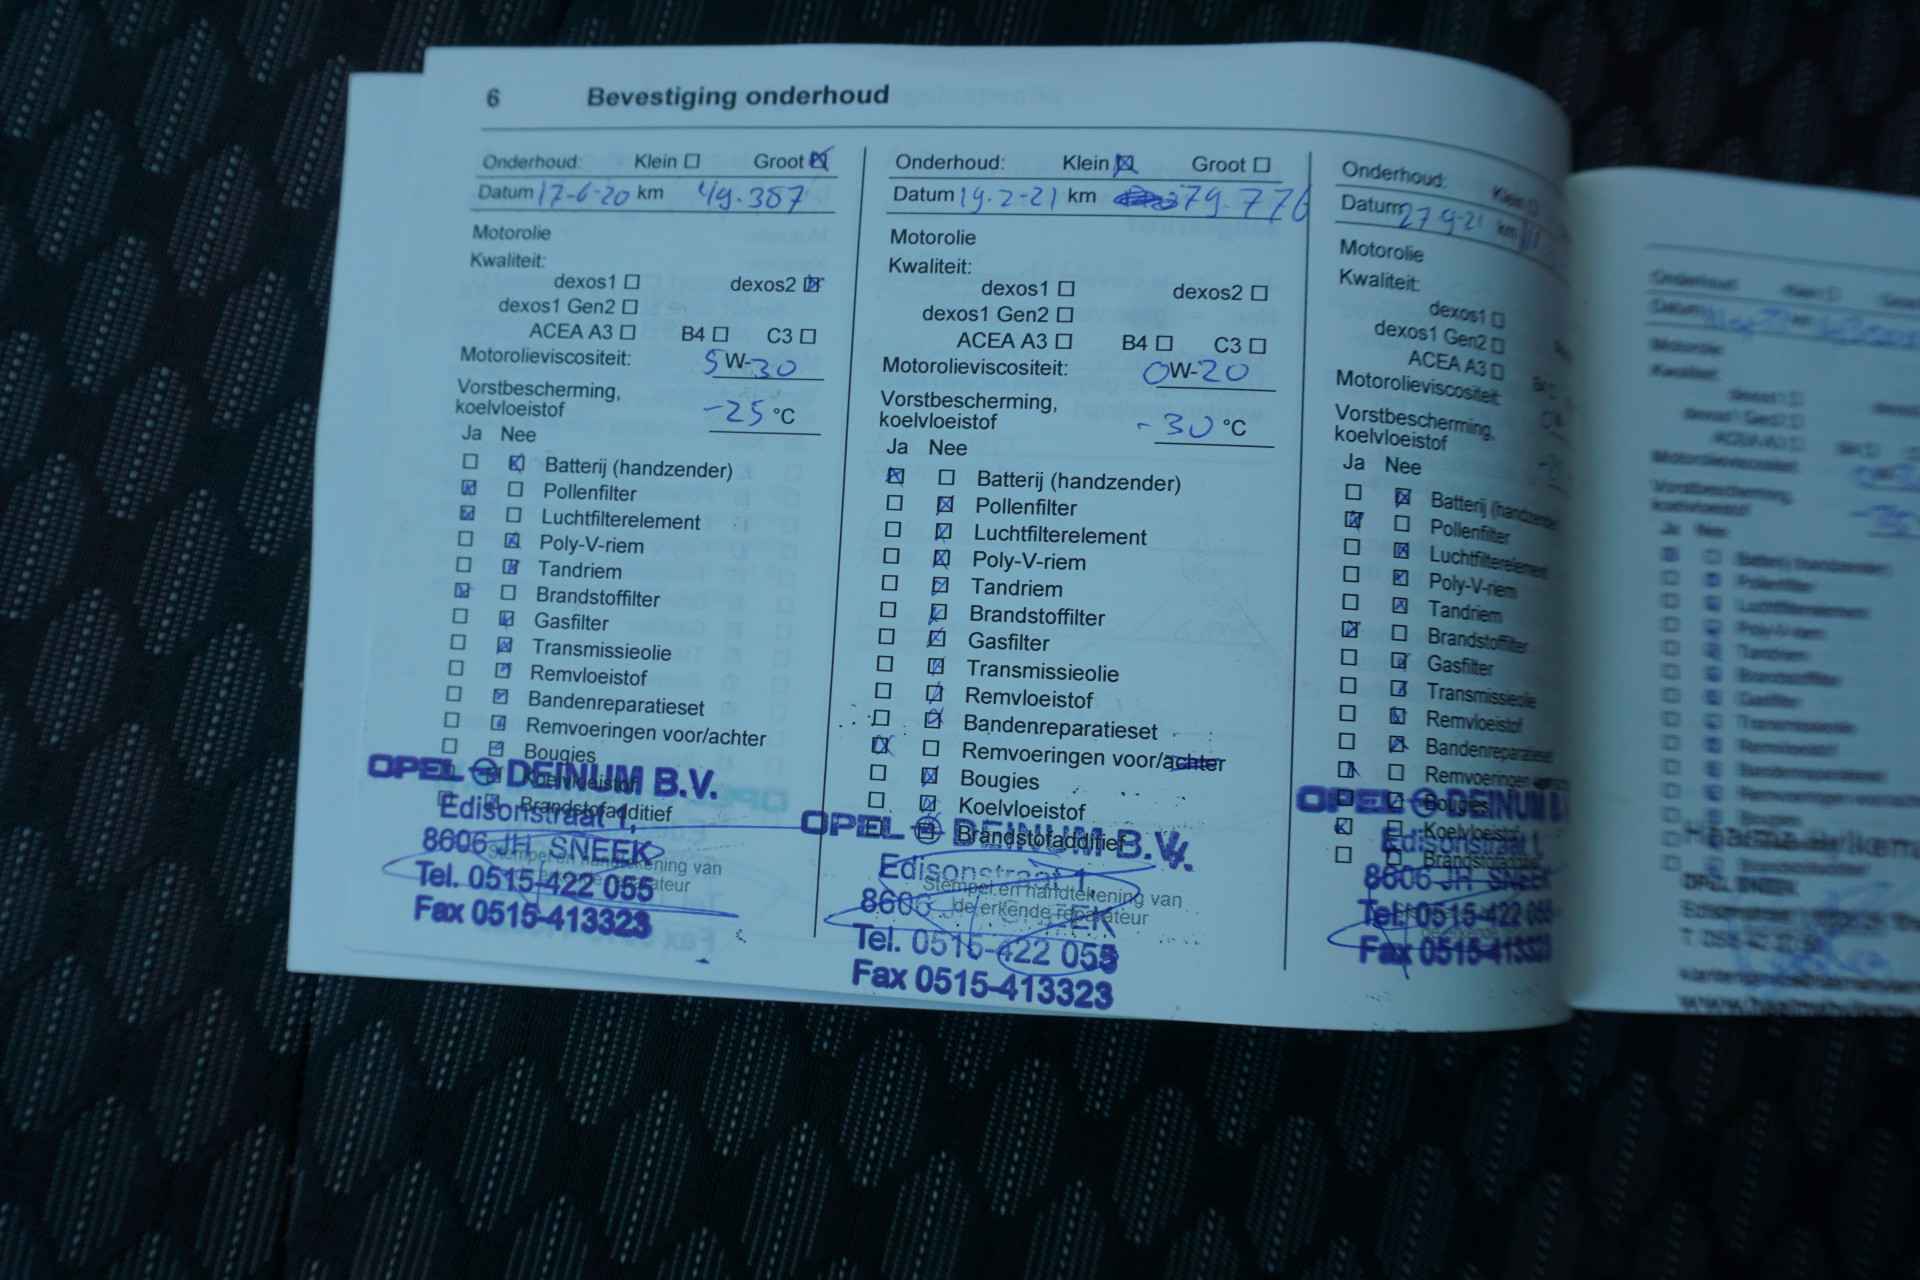 6 Bevestiging onderhoud
Onderhoud: Klein Groot
Datum 17-6-20 km 49.387
Motorolie
Kwaliteit:
dexos1 dexos2
dexos1 Gen2
ACEA A3 B4 C3
Motorolieviscositeit: 5W-30
Vorstbescherming,
koelvloeistof -25 °C
Ja Nee
Batterij (handzender)
Pollenfilter
Luchtfilterelement
Poly-V-riem
Tandriem
Brandstoffilter
Gasfilter
Transmissieolie
Remvloeistof
Bandenreparatieset
Remvoeringen voor/achter
Bougies
Koelvloeistof
Brandstofadditief
OPEL DEINUM B.V.
Edisonstraat 1,
8606 JH SNEEK
Stempel en handtekening van
Tel. 0515-422 055
Fax 0515-413323
Onderhoud: Klein Groot
Datum 19-2-21 km 79.776
Motorolie
Kwaliteit:
dexos1 dexos2
dexos1 Gen2
ACEA A3 B4 C3
Motorolieviscositeit: 0W-20
Vorstbescherming,
koelvloeistof -30 °C
Ja Nee
Batterij (handzender)
Pollenfilter
Luchtfilterelement
Poly-V-riem
Tandriem
Brandstoffilter
Gasfilter
Transmissieolie
Remvloeistof
Bandenreparatieset
Remvoeringen voor/achter
Bougies
Koelvloeistof
Brandstofadditief
OPEL DEINUM B.V.
Edisonstraat 1,
Stempel en handtekening van
8606 SNEEK
de erkende reparateur
Tel. 0515-422 055
Fax 0515-413323
Onderhoud: Klein
Datum 27-9-21 km
Motorolie
Kwaliteit:
dexos1
dexos1 Gen2
ACEA A3
Motorolieviscositeit:
Vorstbescherming,
koelvloeistof
Ja Nee
Batterij (handzender)
Pollenfilter
Luchtfilterelement
Poly-V-riem
Tandriem
Brandstoffilter
Gasfilter
Transmissieolie
Remvloeistof
Bandenreparatieset
Remvoeringen
Bougies
Koelvloeistof
Brandstofadditief
OPEL DEINUM
Edisonstraat 1,
8606 JH SNEEK
Tel. 0515-422 055
Fax 0515-413323
Onderhoud: Klein
Datum
Motorolie
Kwaliteit:
dexos1
dexos1 Gen2
ACEA A3
Motorolieviscositeit:
Vorstbescherming,
koelvloeistof
Ja Nee
Batterij (handzender)
Pollenfilter
Luchtfilterelement
Poly-V-riem
Tandriem
Brandstoffilter
Gasfilter
Transmissieolie
Remvloeistof
Bandenreparatieset
OPEL SNEEK